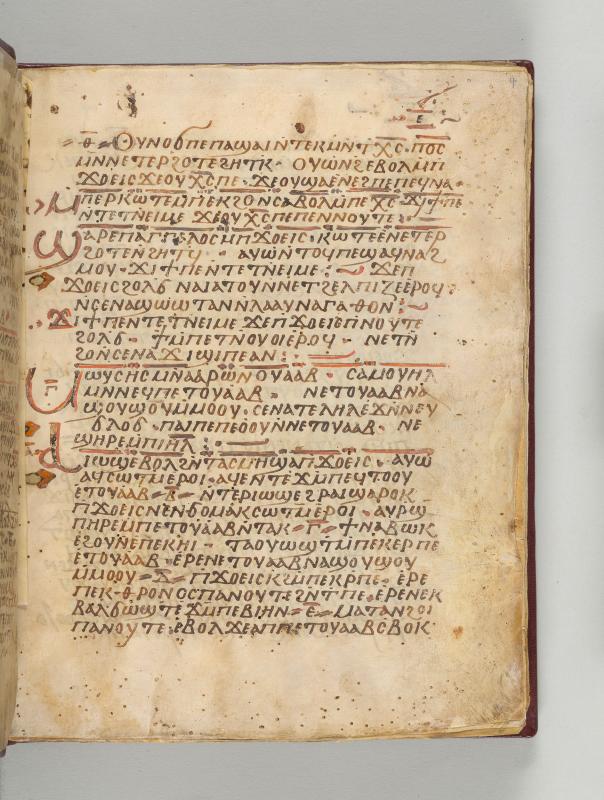 – ⲑ̅ – ⲟⲩⲛⲟϭⲡⲉⲡⲁϣⲁⲓⲛⲧⲉⲕⲙⲛ̄ⲧⲭ̅ⲥ̅· ⲡⲟⲥ
ⲙⲛⲛⲉⲧⲉⲣϩⲟⲧⲉϩⲏⲧⲕ· ⲟⲩⲱⲛ̄ϩⲉⲃⲟⲗⲙ̄ⲡ
ϫⲟⲉⲓⲥϫⲉⲟⲩⲭ̅ⲥ̅ⲡⲉ· ϫⲉⲟⲩϣⲁⲉⲛⲉϩⲡⲉⲡⲉϥⲛⲁ·
ⲙⲡⲉⲣⲕⲱⲧⲉⲙ̄ⲡⲉⲕϩⲟⲛⲥⲁⲃⲟⲗⲙ̄ⲡⲉⲭ̅ⲥ̅ ϫⲓϯⲡⲉ
ⲛⲧⲉⲧⲛⲉⲓⲙⲉ ϫⲉⲟⲩⲭ̅ⲥ̅ⲡⲉⲡⲉⲛⲛⲟⲩⲧⲉ:
ϣⲁⲣⲉⲡⲁⲅⲅⲉⲗⲟⲥⲙⲡϫⲟⲉⲓⲥ· ⲕⲱⲧⲉⲉⲛⲉⲧⲉⲣ
ϩⲟⲧⲉⲛ̄ϩⲏⲧϥ· ⲁⲩⲱⲛⲧⲟϥⲡⲉϣⲁϥⲛⲁϩ
ⲙⲟⲩ· ϫⲓϯⲡⲉⲛⲧⲉⲧⲛⲉⲓⲙⲉ: ϫⲉⲡ
ϫⲟⲉⲓⲥϩⲟⲗϭ ⲛⲁⲓⲁⲧⲟⲩⲛⲛⲉⲧϩⲉⲗⲡⲓⲍⲉⲉⲣⲟϥ:
ⲛ̄ⲥⲉⲛⲁϣⲱⲱⲧⲁⲛⲛ̄ⲗⲁⲁⲩⲛⲁⲅⲁⲑⲟⲛ:
ϫⲓϯⲡⲉⲛⲧⲉⲧⲛⲉⲓⲙⲉ ϫⲉⲡϫⲟⲉⲓⲥⲡⲛⲟⲩⲧⲉ
ϩⲟⲗϭ· ϯⲙ̄ⲡⲉⲧⲛⲟⲩⲟⲓⲉⲣⲟϥ· ⲛⲉⲧⲛ̄
ϩⲟⲛ̄ⲥⲉⲛⲁϫⲓϣⲓⲡⲉⲁⲛ:
ⲙⲱⲩⲥⲏⲥⲙⲛ̄ⲁⲁⲣⲱⲛⲟⲩⲁⲁⲃ· ⲥⲁⲙⲟⲩⲏⲗ
ⲙⲛⲛⲉϥⲡⲉⲧⲟⲩⲁⲁⲃ· ⲛⲉⲧⲟⲩⲁⲁⲃⲛⲁ
ϣⲟⲩϣⲟⲩⲙⲙⲟⲟⲩ·ⲥⲉⲛⲁⲧⲉⲗⲏⲗⲉϫⲛ̄ⲛⲉⲩ
ϭⲗⲟϭ·ⲡⲁⲓⲡⲉⲡⲉⲟⲟⲩⲛⲛⲉⲧⲟⲩⲁⲁⲃ· ⲛⲉ
ϣⲏⲣⲉⲙ̄ⲡⲓⲏ̅ⲗ̅:
ⲁⲓⲱϣⲉⲃⲟⲗϩⲛ̄ⲧⲁⲥⲙⲏϣⲁⲡϫⲟⲉⲓⲥ· ⲁⲩⲱ
ⲁϥⲥⲱⲧⲙⲉⲣⲟⲓ·ⲁϥⲉⲛⲧⲉϫⲙ̄ⲡⲉϥⲧⲟⲟⲩ
ⲉⲧⲟⲩⲁⲁⲃ – ⲃ̅ – ⲛ̄ⲧⲉⲣⲓⲱϣⲉϩⲣⲁⲓϣⲁⲣⲟⲕ
ⲡϫⲟⲉⲓⲥⲛⲉⲛϭⲟⲙⲁⲕⲥⲱⲧⲙⲉⲣⲟⲓ· ⲁⲩⲣϣ
ⲡⲏⲣⲉⲙ̄ⲡⲉⲧⲟⲩⲁⲁⲃⲛ̄ⲧⲁⲕ – ⲅ̅ – ϯⲛⲁⲃⲱⲕ
ⲉϩⲟⲩⲛⲉⲡⲉⲕⲏⲓ· ⲧⲁⲟⲩⲱϣⲧⲙ̄ⲡⲉⲕⲉⲣⲡⲉ
ⲉⲧⲟⲩⲁⲁⲃ· ⲉⲣⲉⲛⲉⲧⲟⲩⲁⲁⲃⲛⲁϣⲟⲩϣⲟⲩ
ⲙⲙⲟⲟⲩ – ⲇ̅ – ⲡϫⲟⲉⲓⲥⲕϩⲙⲡⲉⲕⲣⲡⲉ· ⲉⲣⲉ
ⲡⲉⲕⲑⲣⲟⲛⲟⲥⲡⲁⲛⲟⲩⲧⲉϩⲛ̄ⲧⲡⲉ·ⲉⲣⲉⲛⲉⲕ
ⲃⲁⲗϭⲱϣⲧⲉϫⲙⲡⲉⲃⲓⲏⲛ – ⲉ̅ – ⲙⲁⲧⲁⲛϩⲟⲓ
ⲡⲁⲛⲟⲩⲧⲉ·ⲉⲃⲟⲗϫⲉⲁⲡⲡⲉⲧⲟⲩⲁⲁⲃⲥⲃⲟⲕ